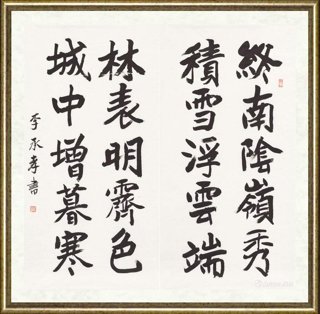 終南陰嶺秀
積雪浮雲端
林表明霽色
城中增暮寒
李承孝書